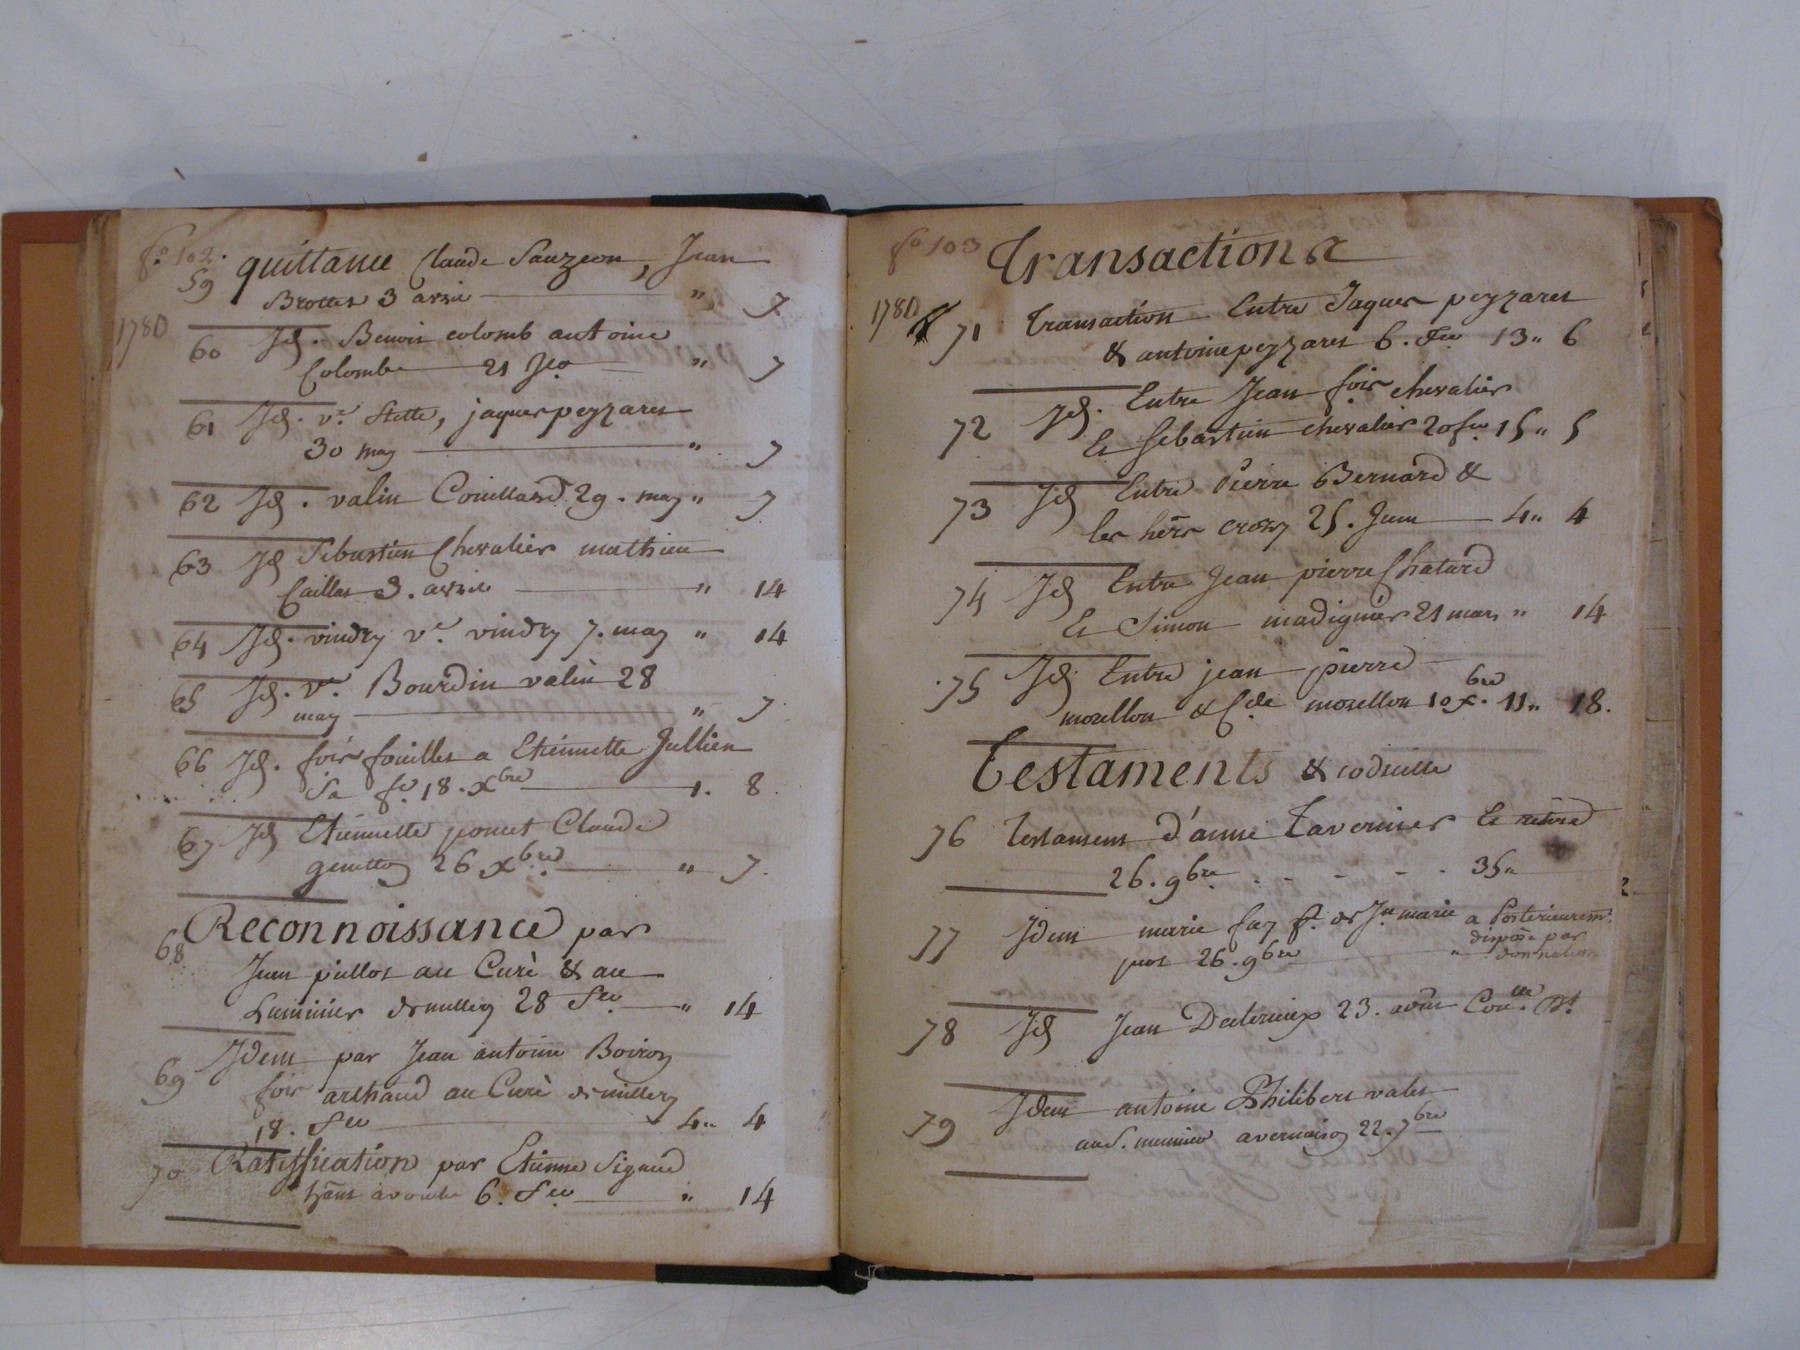 fo. 102.
59 quittance Claude Sauzeon, Jean
Brottet 3 avril " 7
1780
60 Id. Benoit colomb antoine
Colombe 21 " 7
61 Id. ve. Stette, jaques peyzaret
30 may " 7
62 Id. valin Couillard 29. may " 7
63 Id Sebastien Chevalier mathieu
Caillat 3. avril " 14
64 Id. vindry ve. vindry 7. may " 14
65 Id. ve. Bourdin valin 28
may " 7
66 Id. fois fouillet a Etiennette Jullien
Sa fe. 18. Xbre 1. 8.
67 Id Etiennette poncet Claude
26 Xbre " 7.
68 Reconnoissance par
Jean pillot au Curé & au
Luminier de millery 28 " 14
69 Idem par Jean antoine Boiron
fois arthaud au Curé de millery
18. 4 " 4
70 Ratiffication par Etienne Sigaud
6. " 14
fo 103
Transactions
1780
71 Transaction Entre Jaques peyzaret
& antoine peyzaret 6. 13 " 6
72 Id. Entre Jean fois chevalier
Et Sebastien chevalier 20 15 " 5
73 Id Entre Pierre Bernard &
les hers crozy 25. Juin 4 " 4
74 Id Entre Jean pierre Chatard
Et Simon madignier 21 mars " 14
75 Id Entre jean pierre
morellon & Cde morellon 10 Xbre. 11 " 18.
Testaments & codicille
76 Testament d'anne Tavernier Et retiré
26. 9bre. - - - - 35 "
77 Idem marie fay fe. de Jn marie a Posterieuremt.
26. 9bre " disposé par
donnation
78 Id Jean Decterieux 23. aout
79 Idem antoine Philibert valet
a vernaison 22. 7bre